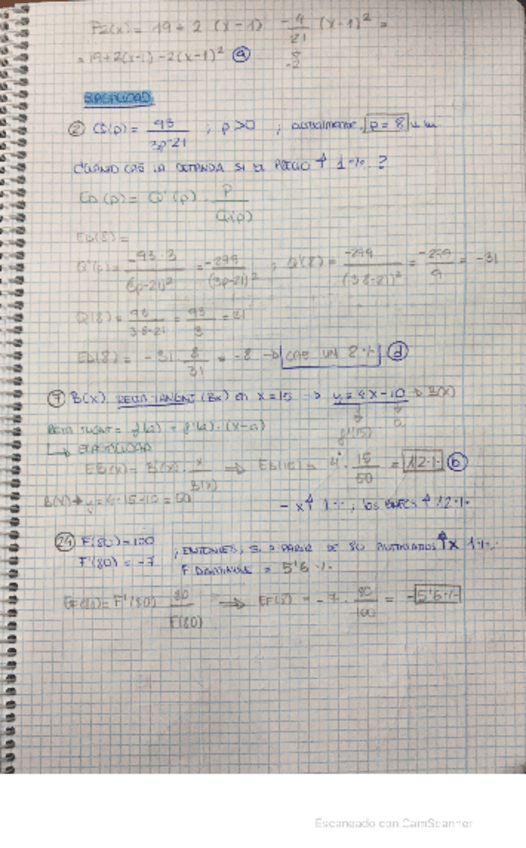 P2(x) = 19 + 2 (x-1) -4/2! (x-1)² =
= 19+2(x-1) -2(x-1)² a
ELASTICIDAD
② Q(p) = 93/3p-21 ; p>0 ; actualmente p = 8 u.m
CUÁNTO CAE LA DEMANDA SI EL PRECIO ↑ 1%?
EQ(p) = Q'(p) · P/Q(p)
EQ(8) =
Q'(p) = -93·3/(3p-21)² = -279/(3p-21)² ; Q'(8) = -279/(3·8-21)² = -279/9 = -31
Q(8) = 93/3·8-21 = 93/3 = 31
EQ(8) = -31 · 8/31 = -8 → CAE UN 8% d
⑦ B(x) RECTA TANGENT (Bx) en x=15 → y = 4x-10 → B(x)
RECTA TANGENT = f(a) + f'(a)·(x-a)
↳ ELASTICIDAD
EB(x) = B'(x) · x/B(x) ⇒ EB(15) = 4 · 15/50 = 1'2% b
B(x) → y = 4·15-10 = 50
- x ↑ 1%, los BNFCS ↑ 1'2%
㉔ F(80)=100
F'(80) = -7 , ENTONCES, SI A PARTIR DE 80 ↑x 1%
F DISMINUYE = 5'6%
EF(80) = F'(80) 80/F(80) ⇒ EF(8) = -7 · 80/100 = -5'6%
Escaneado con CamScanner